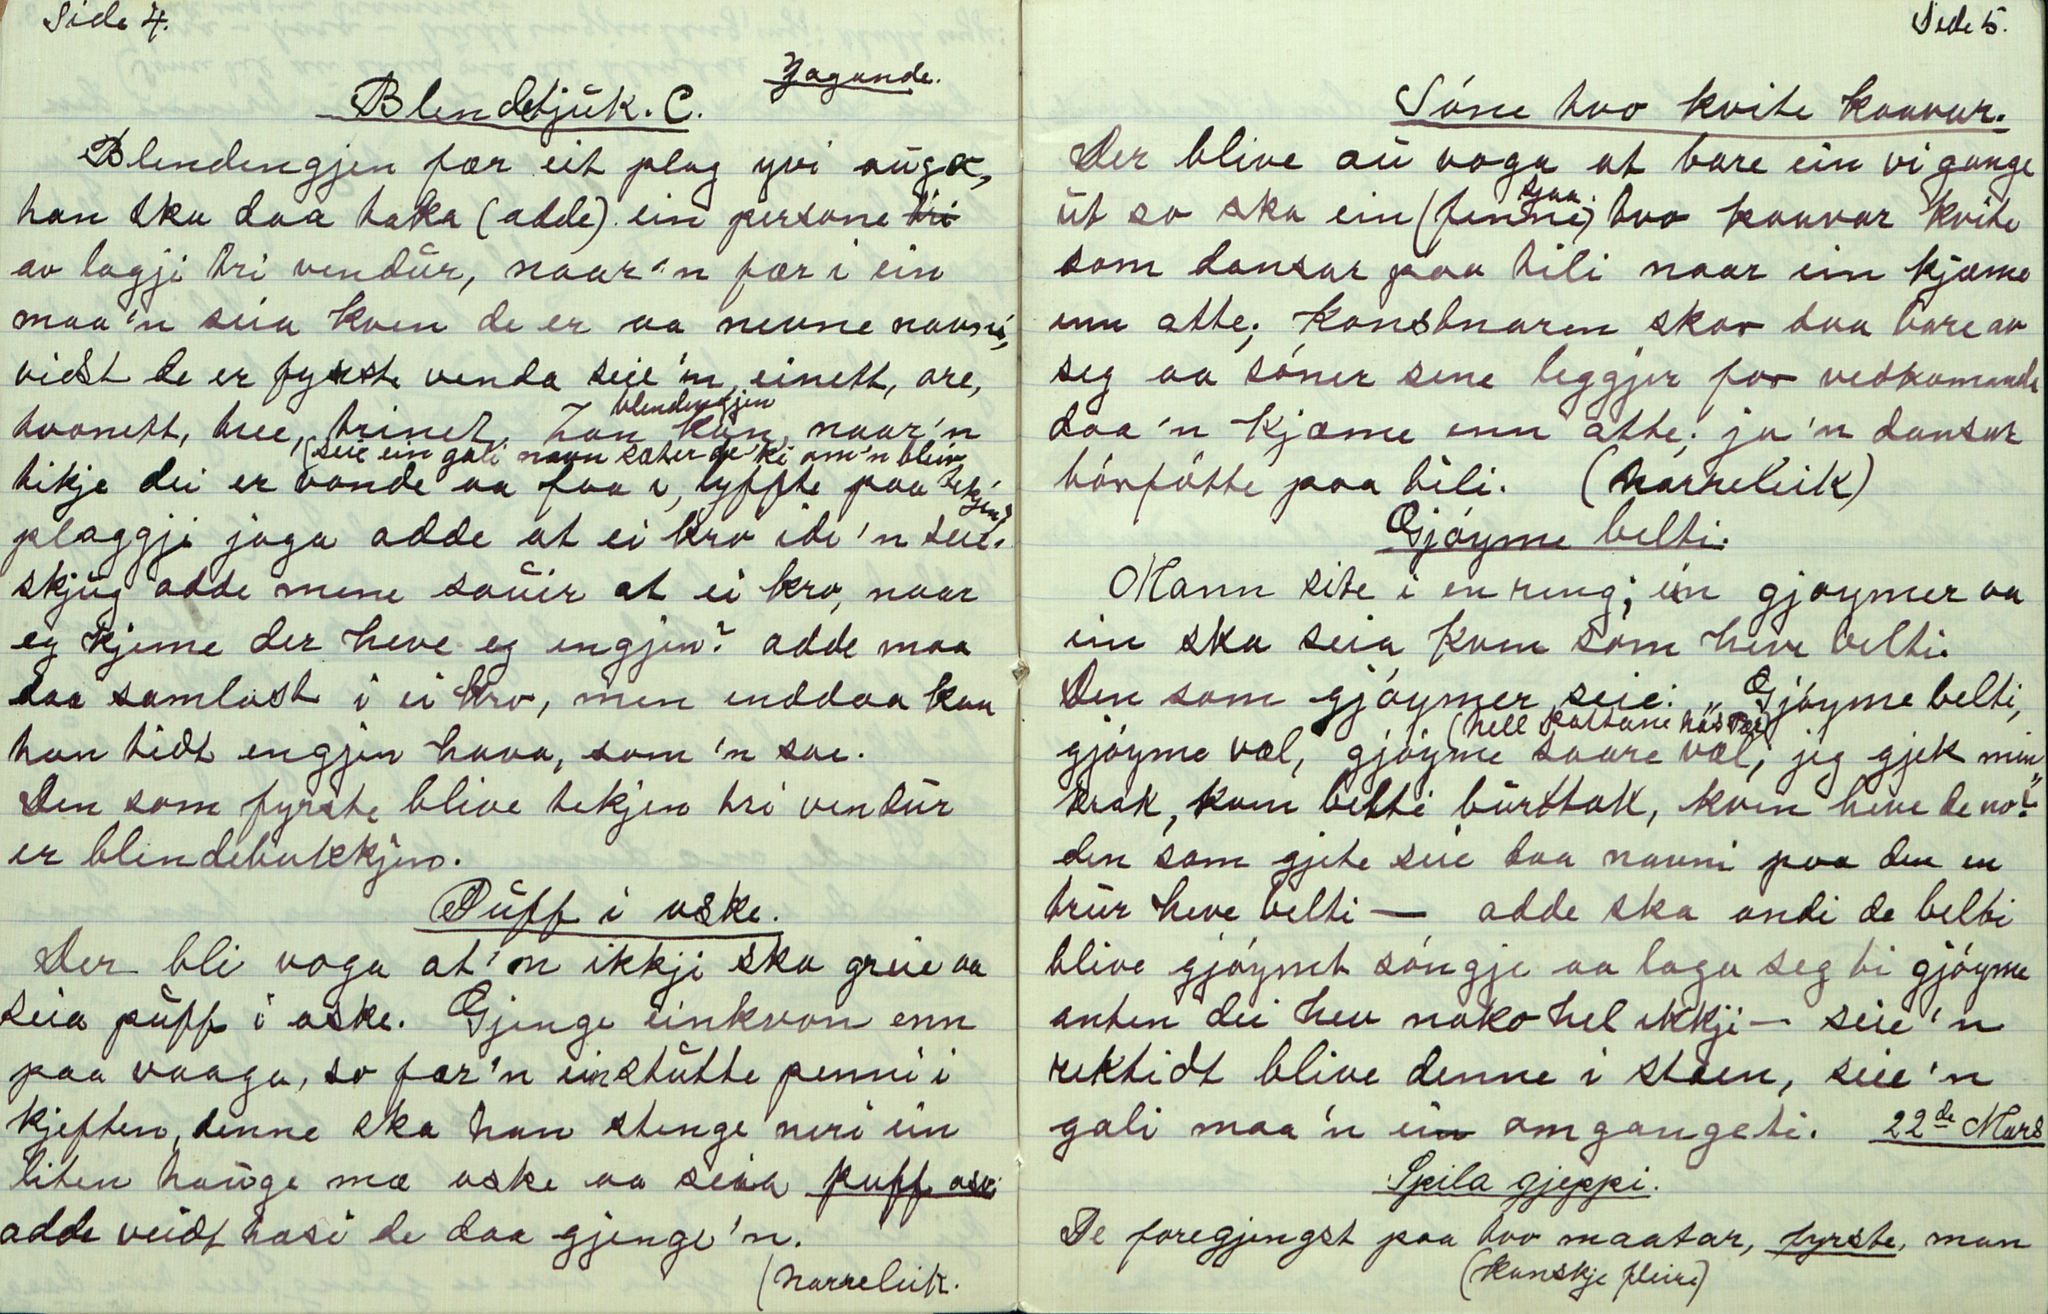 Side 4.
Jagande.
Blendetjuk. C.
Blendengjen fær eit plag yvi auga,
han ska daa taka (adde) ein persone tri
av lagji tri vendūr, naar'n fær i ein
maa'n seia kven de er aa nevne navni,
vidst de er fyrste venda seie'n, einett, are,
tvonett, tree, trinet. Han kan, naar'n
blendengjen
(seie ein gali navn sæter de'ki om'n bliv
tikje dei er vonde aa faa i, lyffte paa
tekjin)
plaggji jaga adde at ei kro ide'n seie.
skjūg adde mene sauir at ei kro, naar
eg kjeme der heve eg engjen? adde maa
daa samlast i ei kro, men enddaa kan
han tidt engjen hava, som'n sae.
Den som fyrste blive tekjen tri vendūr
er blendebukkjen.
Pūff i oske.
Der bli voga at'n ikkji ska greie aa
seia pūff i oske. Gjenge einkvan enn
paa vaaga, so fær'n ein stūtte penni i
kjeften, denne ska han stenge neri ein
liten hauge mæ oske aa seia puff oske
adde veidt hosi de daa gjenge'n.
(narreleik.
Side 5.
Sóne tvo kvite kaavar.
Der blive aū voga at bare ein vi gange
ūt so ska ein (fenne) tvo kaavar kvite
sjaa
som dansar paa tili naar ein kjæme
enn atte; Konstnaren skav daa bare av
seg aa sóner sene leggjer for vedkomande
daa'n kjæme enn atte; ja'n dansar
bórfótte paa tili. (Narreleik)
Gjóyme belti.
Mann site i en reng; ein gjoymer aa
ein ska seia kven som heve belti.
Den som gjóymer seie: "Gjóyme belti,
(hell kattane hás Per)
gjóyme væl, gjóyme saare væl, jeg gjek min
krok, kom belti būrttok, kven heve de no?"
den som gjete seie daa navni paa den en
trūr heve belti — adde ska andi de belti
blive gjóymt sóngje aa laga seg ti gjóyme
anten dei hev noko hel ikkji — seie'n
rektidt blive denne i staen, seie'n
gali maa'n ein omgangeti. 22de Mars
Spila gjeppi.
De foregjengst paa tvo maatar, fyrste, man
(kanskje fleire)